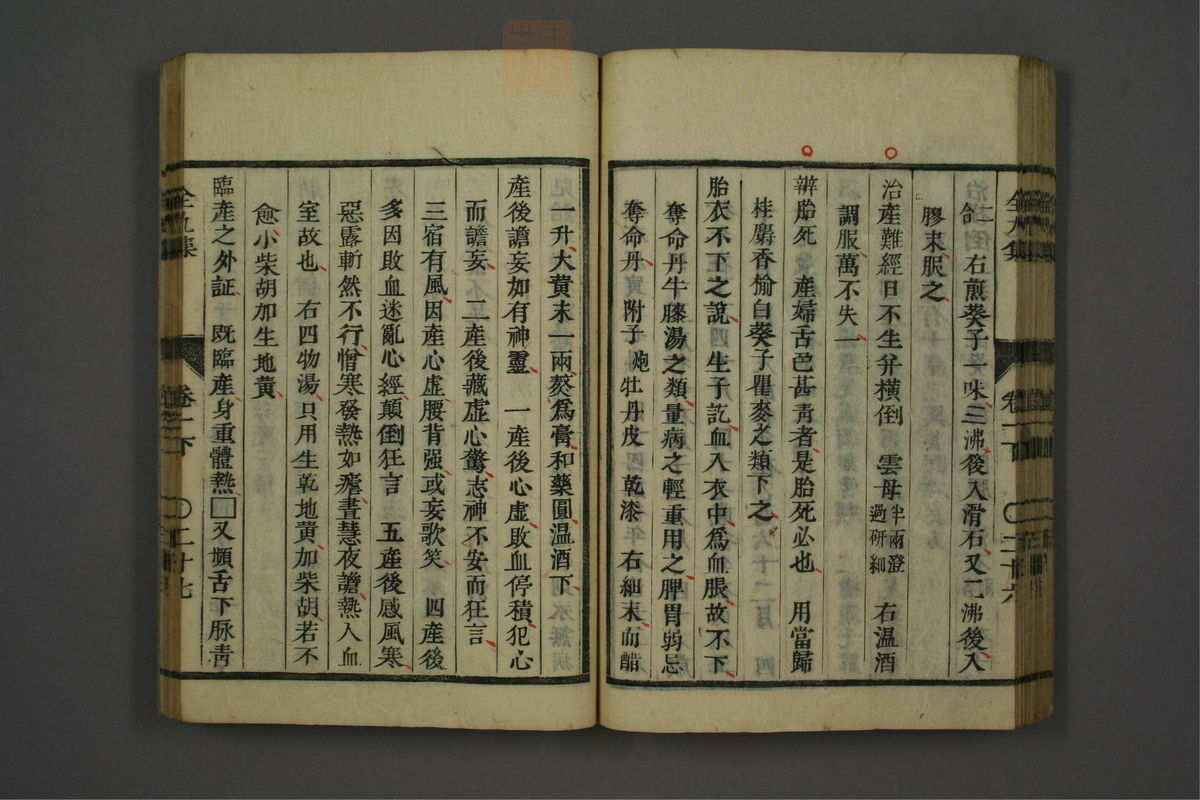 飲 右煎葵子一味三沸後入滑石又二沸後入
膠末服之
治產難經日不生并橫倒 雲母半兩澄過研細 右温酒
調服萬不失一
辨胎死 產婦舌色甚靑者是胎死必也 用當歸
桂麝香榆白葵子瞿麥之類下之
胎衣不下之說 生子訖血入衣中爲血脹故不下
奪命丹牛膝湯之類量病之輕重用之脾胃弱忌
奪命丹 附子炮 牡丹皮 乾漆 右細末而醋
全九集 卷二下 〇二十六
一升大黃末一兩葵爲膏和藥圓温酒下
產後譫妄如有神靈 一產後心虛敗血停積犯心
而譫妄 二產後藏虛心驚志神不安而狂言
三宿有風因產心虛腰背强或妄歌笑 四產後
多因敗血迷亂心經顛倒狂言 五產後感風寒
惡露斬然不行憎寒發熱如瘧晝慧夜譫熱入血
室故也 右四物湯只用生乾地黃加柴胡若不
愈小柴胡加生地黃
臨產之外証 既臨產身重體熱又頻舌下脉靑
全九集 卷二下 〇二十七